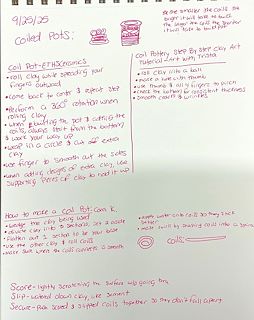 9/25/25
Coiled Pots:
the smaller the coils the
longer it will take to build
the larger the coils the
it will take to build
Coil Pot-ETHSCeramics
- roll clay while spreading your
fingers outward
- come back to center & repeat step
- Perform a 360° rotation when
rolling clay
- when building the pot & adding the
coils, always start from the bottom
& work your way up
- wrap in a circle & cut off extra
clay
- use finger to smooth out the coils
- when adding designs of extra clay, use
supporting pieces of clay to hold it up
Coil Pottery Step By Step Clay Art
Tutorial-Art with Trista
- roll clay into a ball
- make a hole with thumb
- use thumb & fingers to pinch
- check the bottom for consistent thickness
- smooth cracks & wrinkles
How to make a Coil Pot- Cam K.
- wedge the clay being used
- divide clay into sections
- flatten out 1 section to be your base
- use the other clay & roll coils
- make sure when the coils connects is smooth
- apply water onto coils so they stick
better
- make swirl by shaping coils into a spiral
coils:
Score- lightly scratching the surface w/
Slip- watered down clay, like cement
Secure- Push scored & slipped coils together so they don't fall apart